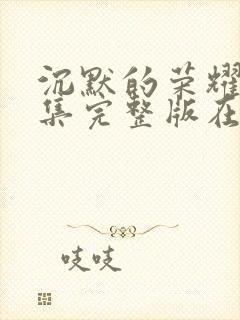 沉默的荣耀
集完整版在
吱吱